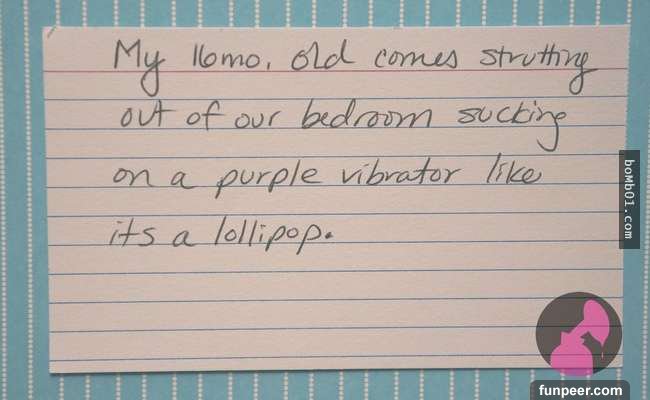 My 16mo. old comes strutting
out of our bedroom sucking
on a purple vibrator like
its a lollipop.
boMb01.com
funpeer.com